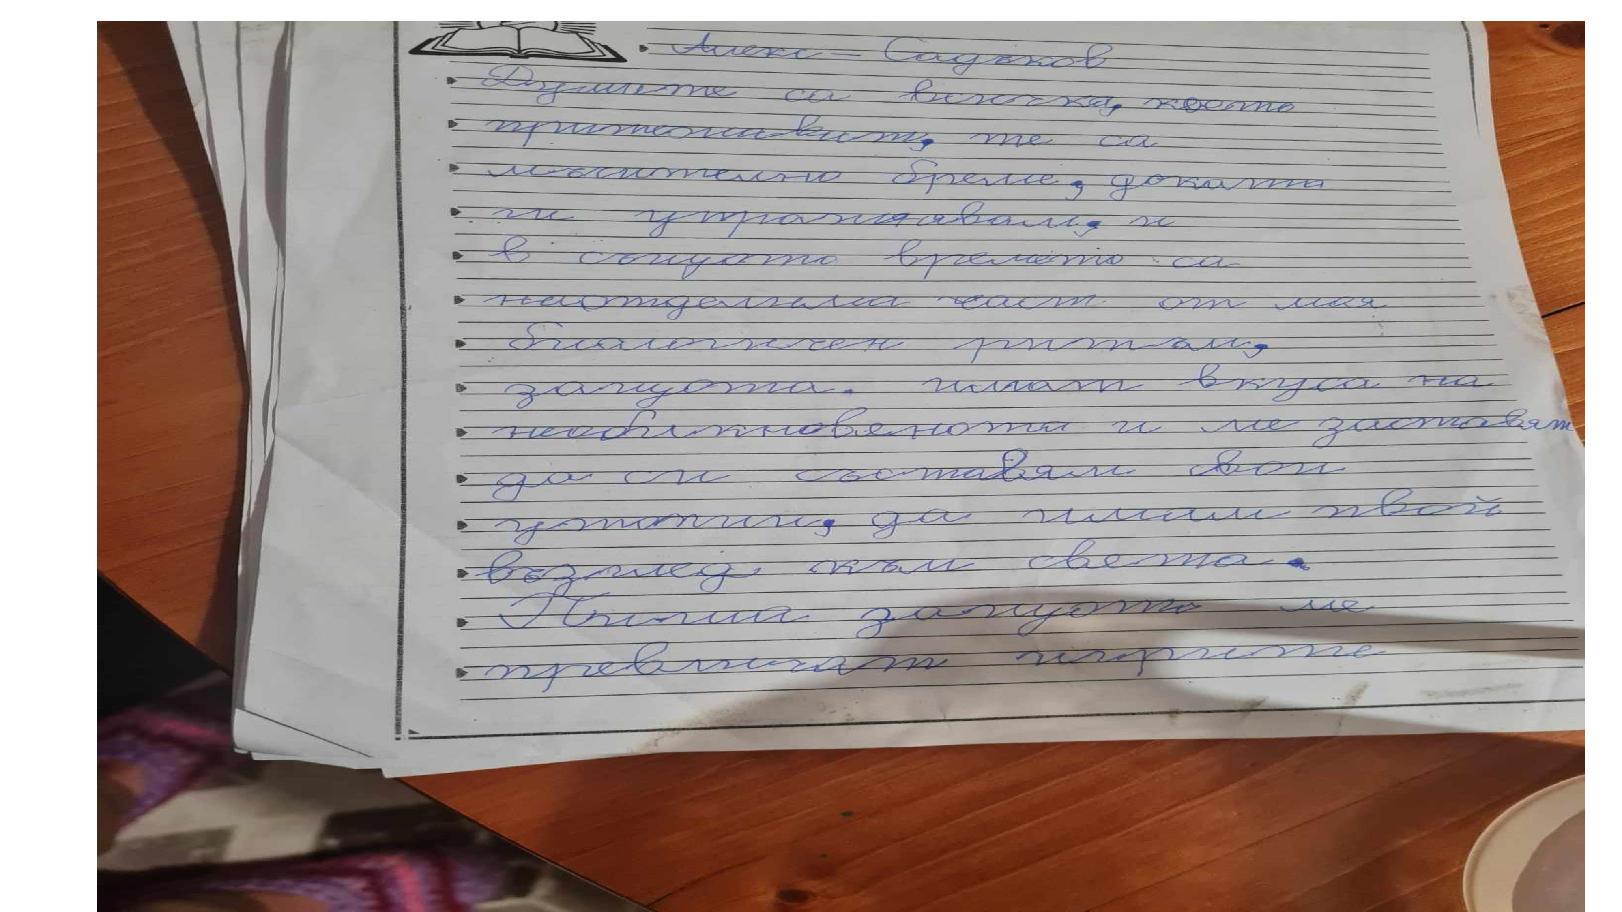 Алекс – Садъков
Думите са всичко, което
притежавам, те са
мъчително бреме, докато
ги управлявам, и
в същото времето са
неотделима част от моя
биологичен ритъм,
защото. имат вкуса на
необикновеното и ме заставят
да си съставям свои
утопии, да имам твой
възглед към света.
Пиша защото ме
превличат игрите